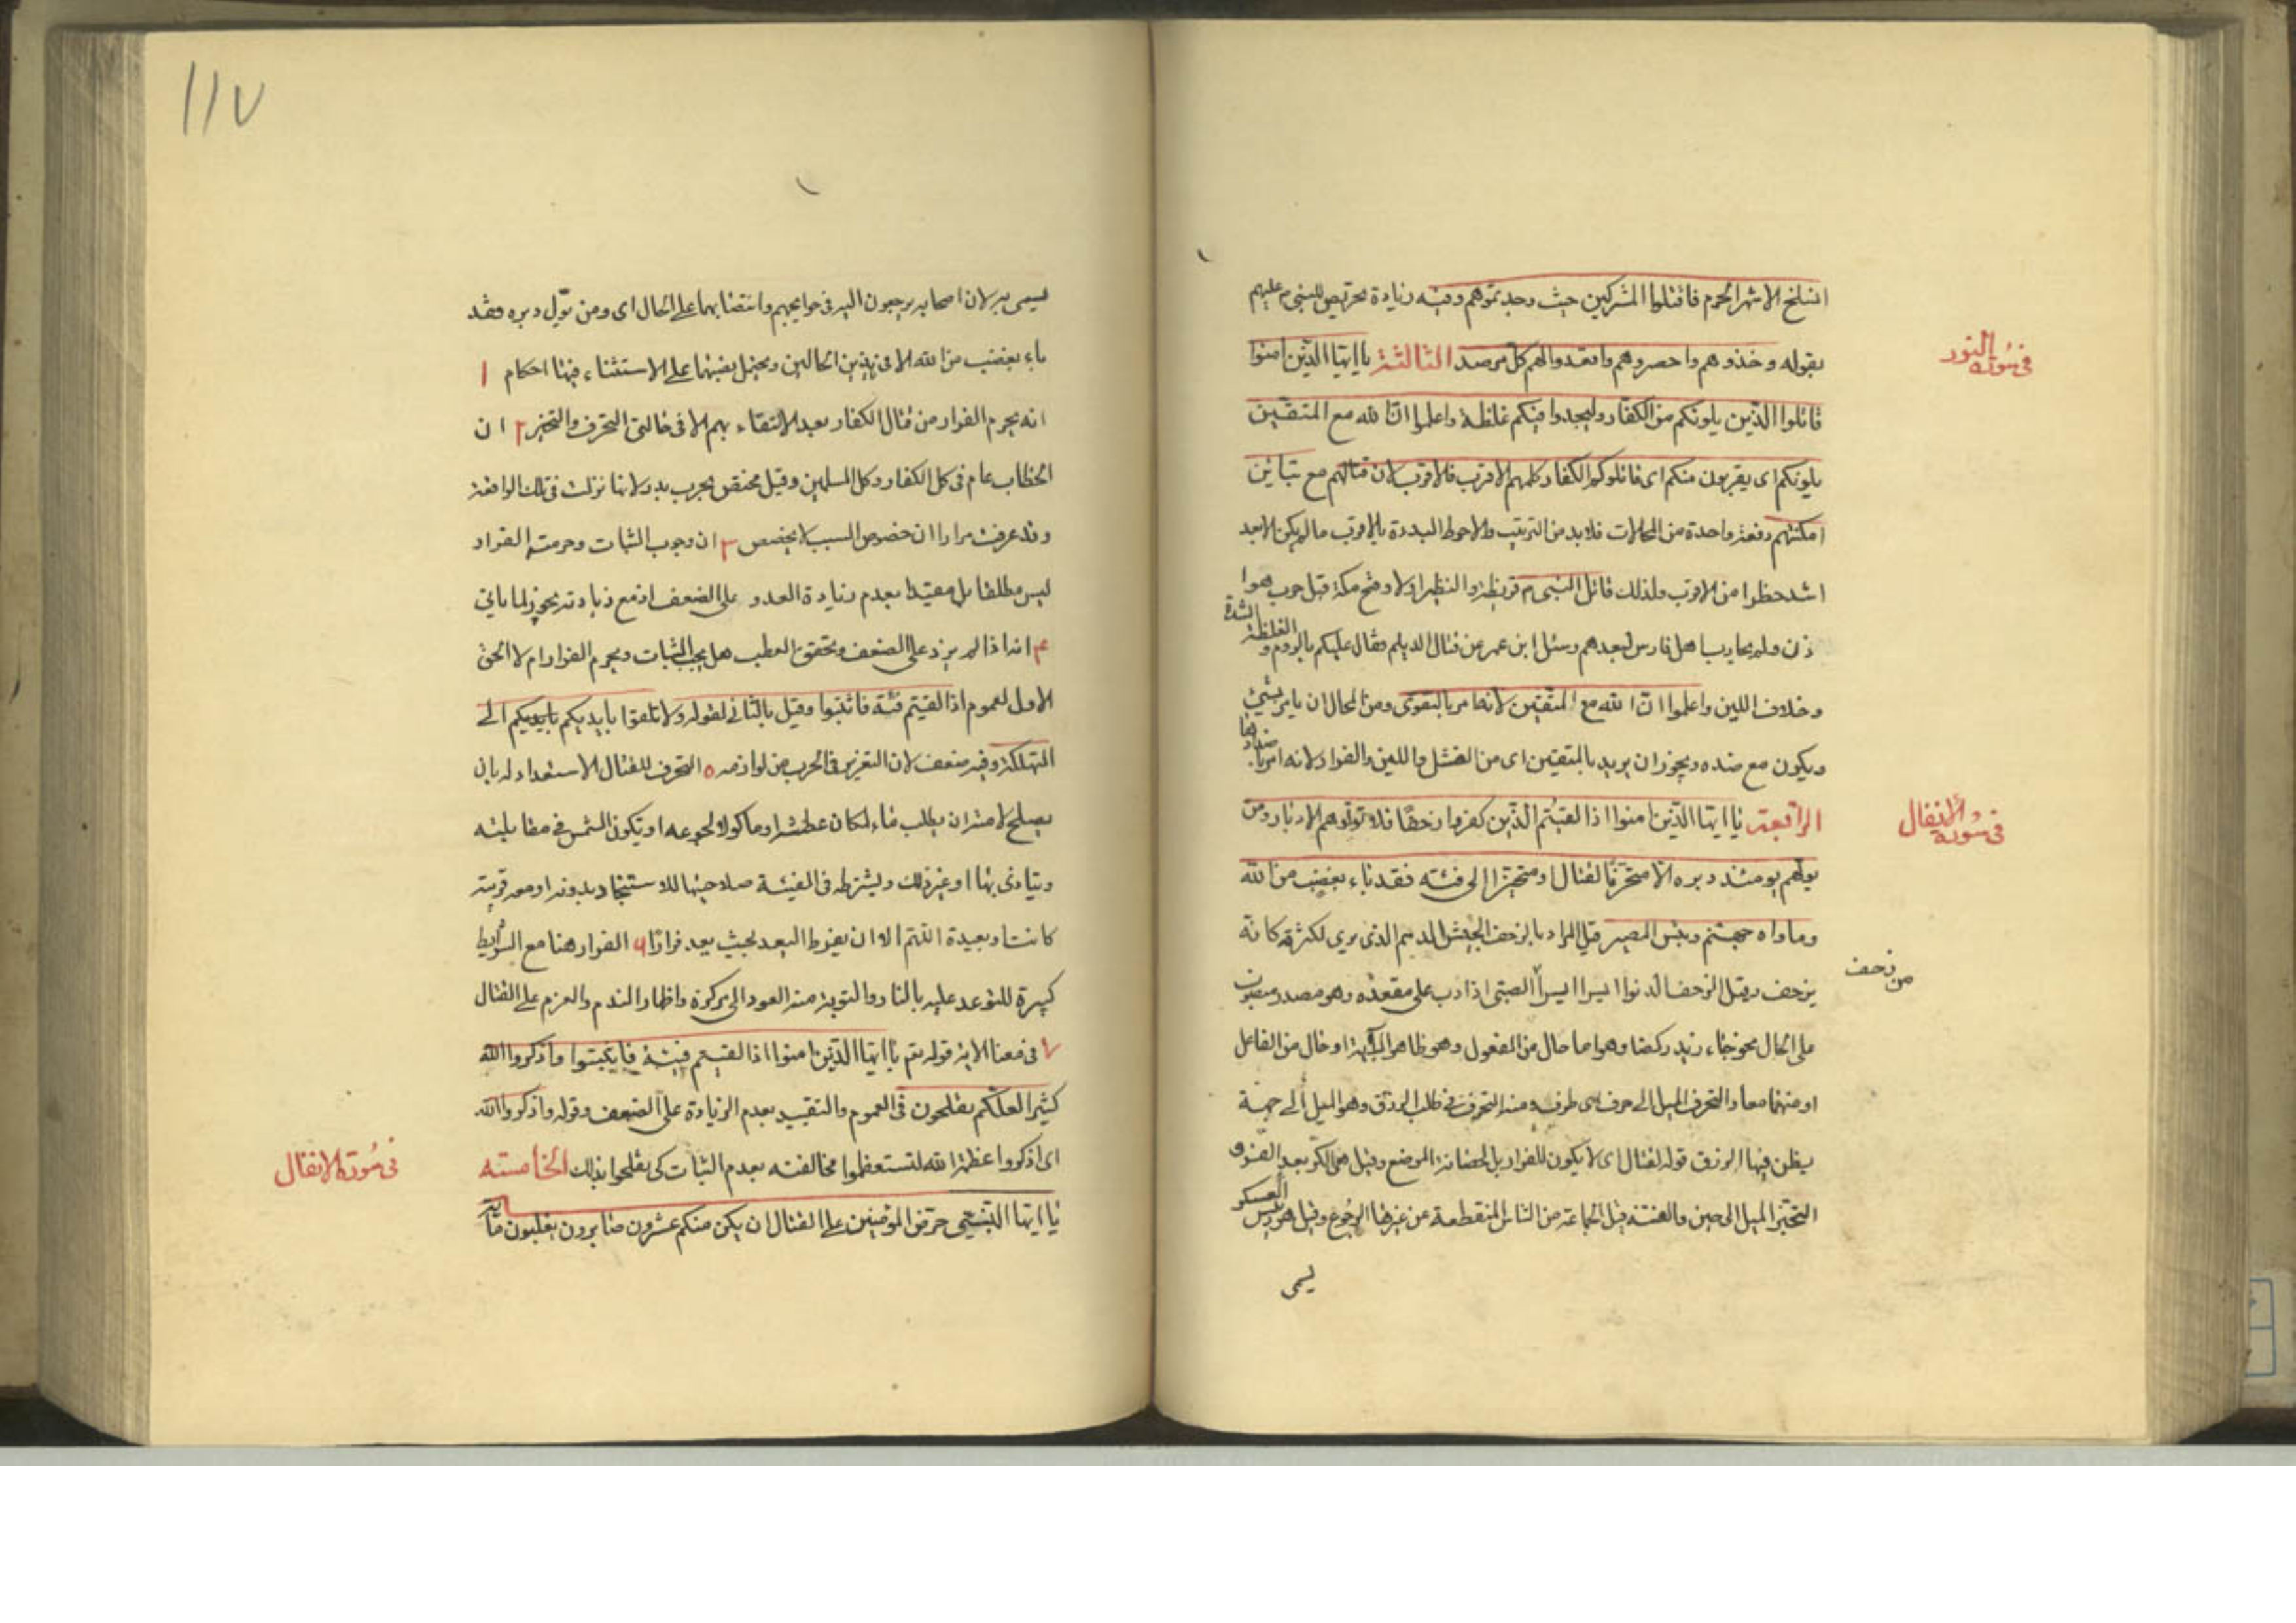 انسلخ الاشهر الحرم فاقتلوا المشركين حيث وجدتموهم وفيه زيادة تحريص للنبي م عليهم
بقوله وخذوهم واحصروهم واقعدوا لهم كل مرصد الثالثة يا ايها الذين امنوا
في سورة التور
قاتلوا الذين يلونكم من الكفار وليجدوا فيكم غلظة واعلموا ان الله مع المتقين
يلونكم اى يقربون منكم اى قاتلوا كل الكفار كلهم الاقرب فالاقرب لان قتالهم مع تباين
امكنتهم دفعة واحدة من المحالات فلا بد من الترتيب والاحوط البدءة بالاقرب ما لم يكن الابعد
اشد خطرا من الاقرب ولذلك قاتل النبي م قريظة والنظير اولا وفتح مكة قبل حرب هوا
زن ولم يحارب اهل فارس لبعدهم وسئل ابن عمر عن قتال الديلم فقال عليكم بالروم و الغلظة الشدة
وخلاف اللين واعلموا ان الله مع المتقين لانه امر بالتقوى ومن المحال ان يامر بشئ
ويكون مع ضده ويجوز ان يريد بالمتقين اى من الفشل واللين والفرار لانه امر باضدادها
الرابعة يا ايها الذين امنوا اذا لقيتم الذين كفروا زحفا فلا تولوهم الادبار ومن
في سورة الانفال
يولهم يومئذ دبره الا متحرفا لقتال او متحيزا الى فئته فقد باء بغضب من الله
وماواه جهنم وبئس المصير قيل المراد بالزحف الجيش الدهم الذى يرى لكثرته كانه
يزحف وقيل الزحف الدنو ايسرا ايسرا الصبى اذا دب على مقعده وهو مصدر منصوب
من زحف
على الحال نحو جاء زيد ركضا وهو اما حال من المفعول وهو ظاهر الاية او حال من الفاعل
او منهما معا والتحرف الميل الى حرف اى طرف ومنه التحرف في طلب الرزق وهو الميل الى جهة
يظن فيها الرزق قوله لقتال اى لا يكون للفرار بل لحضانة الموضع وقيل هى الكر بعد الفر وفى
التحيز الميل الى حيز والفئة قيل الجماعة من الناس المنقطعة عن غيرها الرجوع وقيل هو رئيس العسكر
ليمى
١١٧
ليسمى به لان اصحابه يرجعون اليه في حوايجهم وانتصابهما على الحال اى ومن تولى دبره فقد
باء بغضب من الله الا في هذين الحالين ويحتمل نصبهما على الاستثناء فهنا احكام ١
انه يحرم الفرار من قتال الكفار بعد الالتقاء بهم الا في حالتى التحرف والتحيز ٢ ان
الخطاب عام في كل الكفار وكل المسلمين وقيل مختص بحرب بدر لانها نزلت في تلك الواقعة
وقد عرفت مرارا ان خصوص السبب لا يخصص ٣ ان وجوب الثبات وحرمة الفرار
ليس مطلقا بل مقيدا بعدم زيادة العدو على الضعف اذ مع زيادته يجوز لما ياتي
٤ انه اذا لم يزد على الضعف وتحقق العطب هل يجب الثبات ويحرم الفرار ام لا الحق
الاول لعموم اذا لقيتم فئة فاثبتوا وقيل بالثاني لقوله ولا تلقوا بايديكم بايديكم الى
التهلكة وفيه ضعف لان التغرير في الحرب من لوازمه ٥ التحرف للقتال الاستعداد له بان
يصلح لامته او يطلب ماء لمكان عطشه او ماكولا لجوعه او تكون الشمس في مقابلته
ويتاذى بها او غير ذلك ويشترط في الفيئة صلاحيتها للاستنجاد بدونه او معه قريبة
كانت او بعيدة اللهم الا ان يفرط البعد بحيث يعد فرارا ٦ الفرار هنا مع الشرايط
كبيرة للتوعد عليه بالنار والتوبة منه العود الى مركزه واظهار الندم والعزم على القتال
٧ في معنا الاية قوله تعم يا ايها الذين امنوا اذا لقيتم فيئة فاثبتوا واذكروا الله
كثيرا لعلكم تفلحون في العموم والتقييد بعدم الزيادة على الضعف وقوله واذكروا الله
اى اذكروا عظمة الله لتستعظموا مخالفته بعدم الثبات كى تفلحوا بذلك الخامسته
في سورة الانفال
يا ايها النبي حرض المؤمنين على القتال ان يكن منكم عشرون صابرون يغلبون مأتين